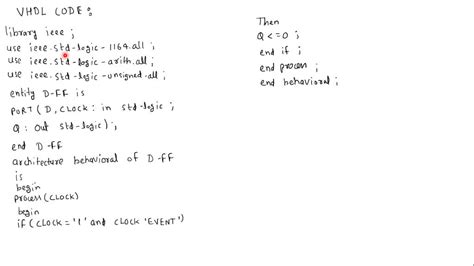 VHDL CODE:
library ieee ;
use ieee.std-logic-1164.all ;
use ieee.std-logic-arith.all ;
use ieee.std-logic-unsigned.all ;
entity D-FF is
PORT ( D, CLOCK : in std-logic ;
Q : Out std-logic) ;
end D-FF
architecture behavioral of D-FF
is
begin
process (CLOCK)
begin
if ( CLOCK = '1' and CLOCK 'EVENT')
Then
Q <= 0 ;
end if ;
end process ;
end behavioral ;